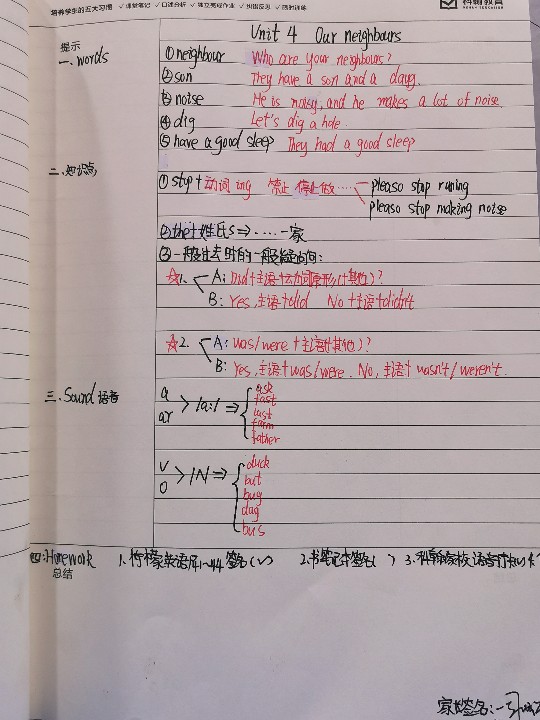 培养学生的五大习惯 ✓课堂笔记 ✓口述分析 ✓独立完成作业 ✓纠错反思 ✓限时训练
科翰教育
提示
Unit 4 Our neighbours
一、words
①neighbour Who are your neighbours?
②son They have a son and a daug.
③noise He is noisy, and he makes a lot of noise.
④dig Let's dig a hole.
⑤have a good sleep They had a good sleep
二、知识点
①stop+动词ing 禁止 停止做…… please stop runing
please stop making noise
②the+姓氏s⇒……一家
③一般过去时的一般疑问句:
☆1. A: Did+主语+动词原形(+其他)?
B: Yes, 主语+did No+主语+didn't
☆2. A: Was/were+主语(+其他)?
B: Yes, 主语+was/were. No, 主语+wasn't/weren't.
三、Sound 语音
a
ar > /a:/ ⇒
ask
fast
last
farm
father
v
o > /Λ/ ⇒
duck
but
bug
dag
bus
四:Homework 1、柠檬英语 签名(✓) 2.书笔记本签名( ) 3、科翰家校语音打
总结
家长签名: